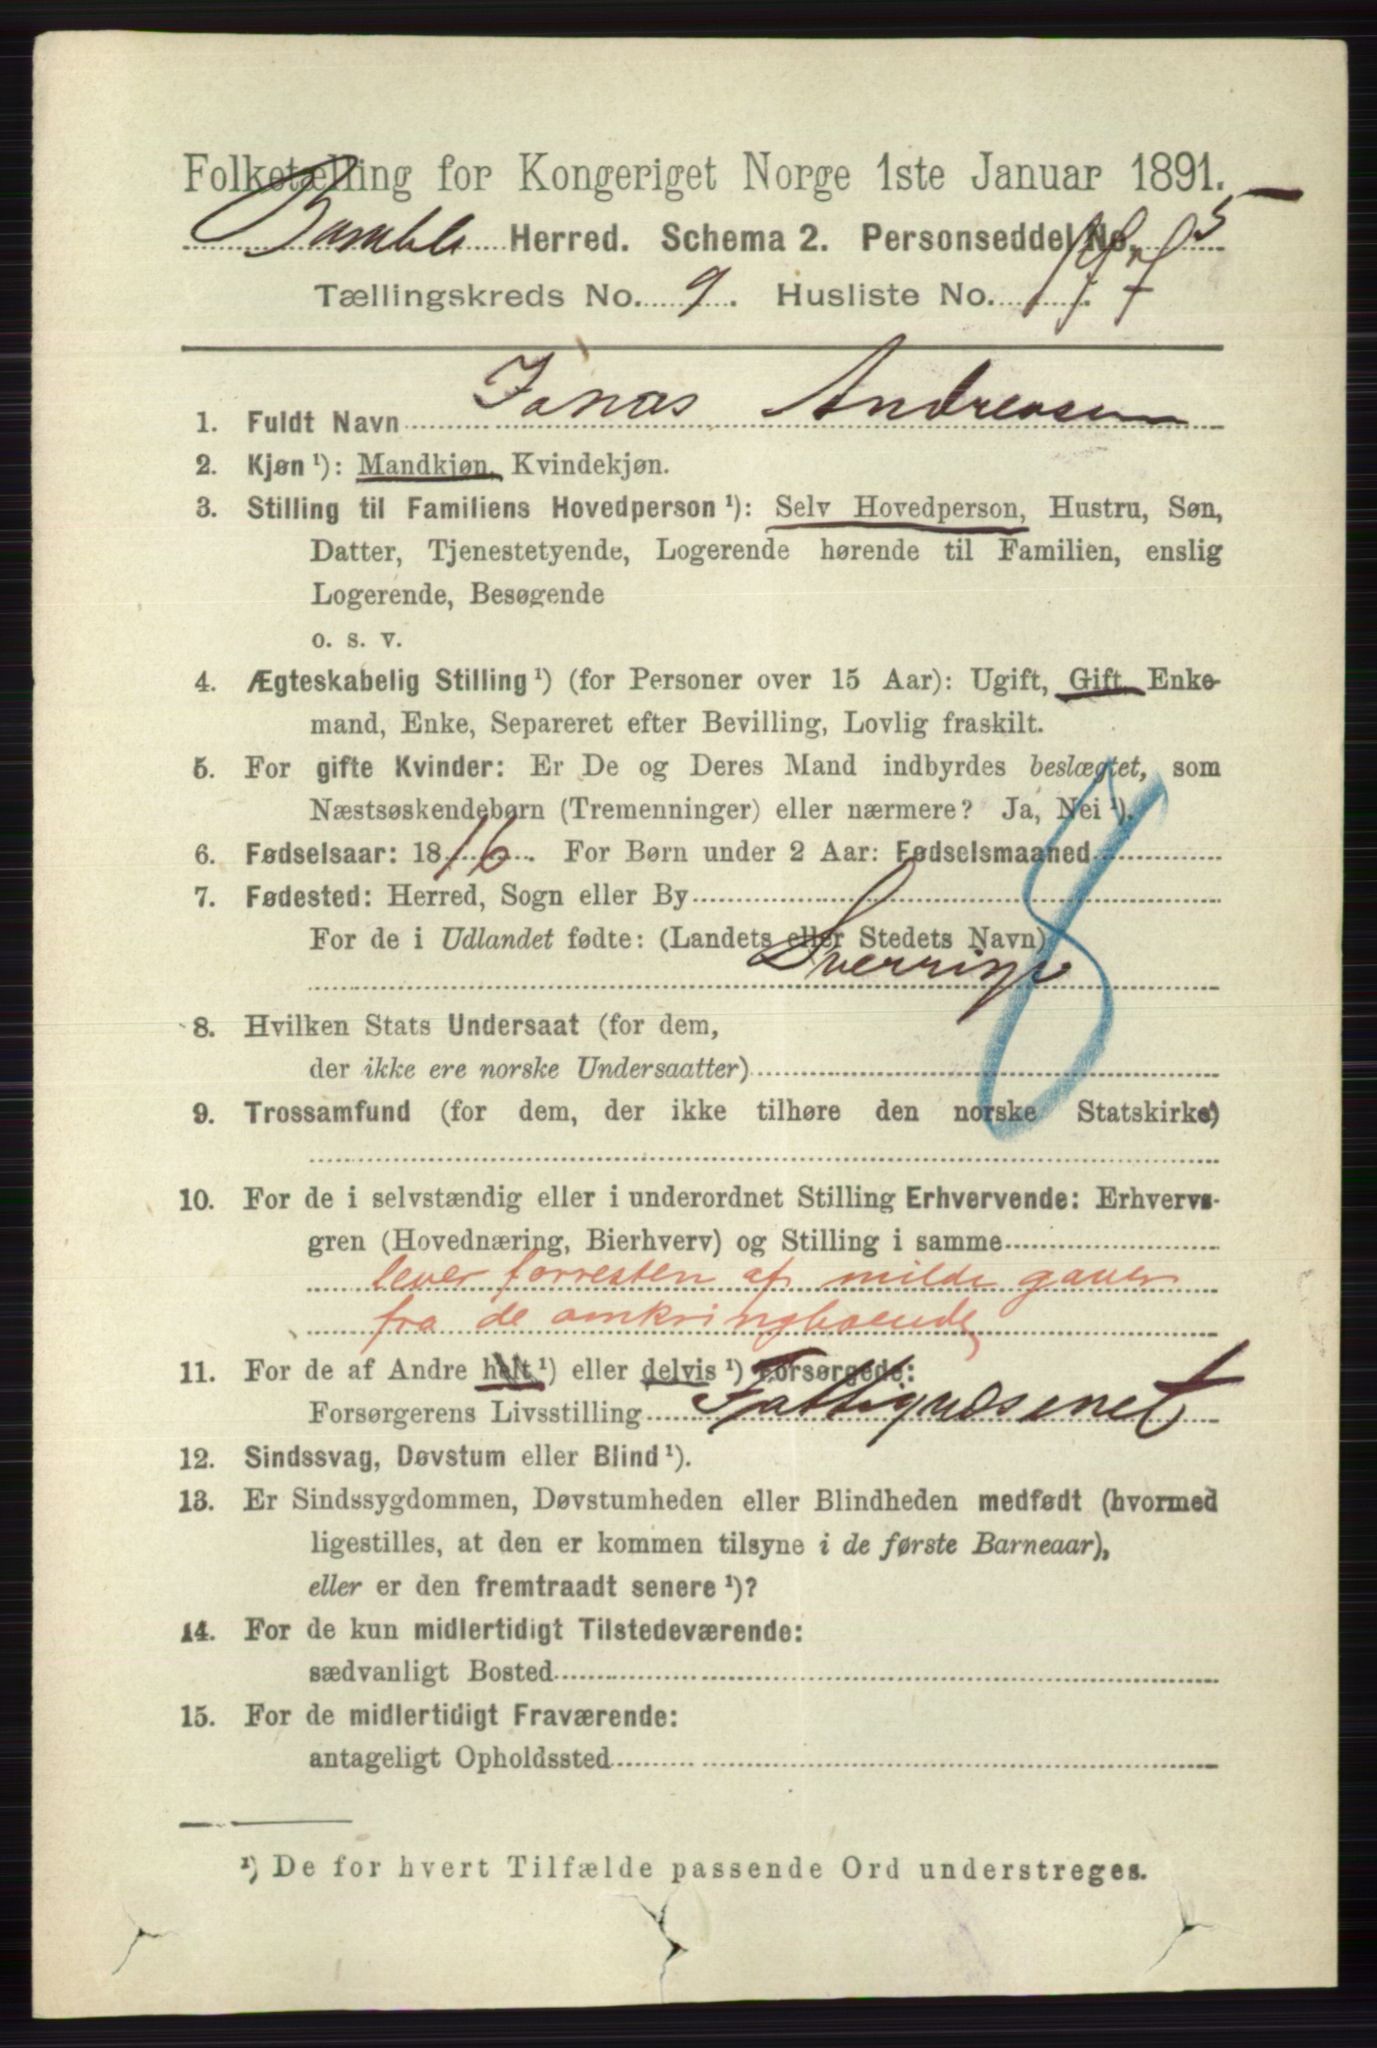 Folketælling for Kongeriget Norge 1ste Januar 1891.
Bamble Herred. Schema 2. Personseddel No. 5
Tællingskreds No. 9. Husliste No.
1. Fuldt Navn Jonas Andreasen
2. Kjøn ¹): Mandkjøn, Kvindekjøn.
3. Stilling til Familiens Hovedperson ¹): Selv Hovedperson, Hustru, Søn,
Datter, Tjenestetyende, Logerende hørende til Familien, enslig
Logerende, Besøgende
o. s. v.
4. Ægteskabelig Stilling ¹) (for Personer over 15 Aar): Ugift, Gift, Enke-
mand, Enke, Separeret efter Bevilling, Lovlig fraskilt.
5. For gifte Kvinder: Er De og Deres Mand indbyrdes beslægtet, som
Næstsøskendebørn (Tremenninger) eller nærmere? Ja, Nei ¹).
6. Fødselsaar: 1816. For Børn under 2 Aar: Fødselsmaaned
7. Fødested: Herred, Sogn eller By
For de i Udlandet fødte: (Landets eller Stedets Navn)
Sverrige
8
8. Hvilken Stats Undersaat (for dem,
der ikke ere norske Undersaatter)
9. Trossamfund (for dem, der ikke tilhøre den norske Statskirke)
10. For de i selvstændig eller i underordnet Stilling Erhvervende: Erhvervs-
gren (Hovednæring, Bierhverv) og Stilling i samme
lever forresten af milde gaver
fra de omkringboende
11. For de af Andre helt ¹) eller delvis ¹) Forsørgede:
Forsørgerens Livsstilling Fattigvæsenet
12. Sindssvag, Døvstum eller Blind ¹).
13. Er Sindssygdommen, Døvstumheden eller Blindheden medfødt (hvormed
ligestilles, at den er kommen tilsyne i de første Barneaar),
eller er den fremtraadt senere ¹)?
14. For de kun midlertidigt Tilstedeværende:
sædvanligt Bosted
15. For de midlertidigt Fraværende:
antageligt Opholdssted
¹) De for hvert Tilfælde passende Ord understreges.